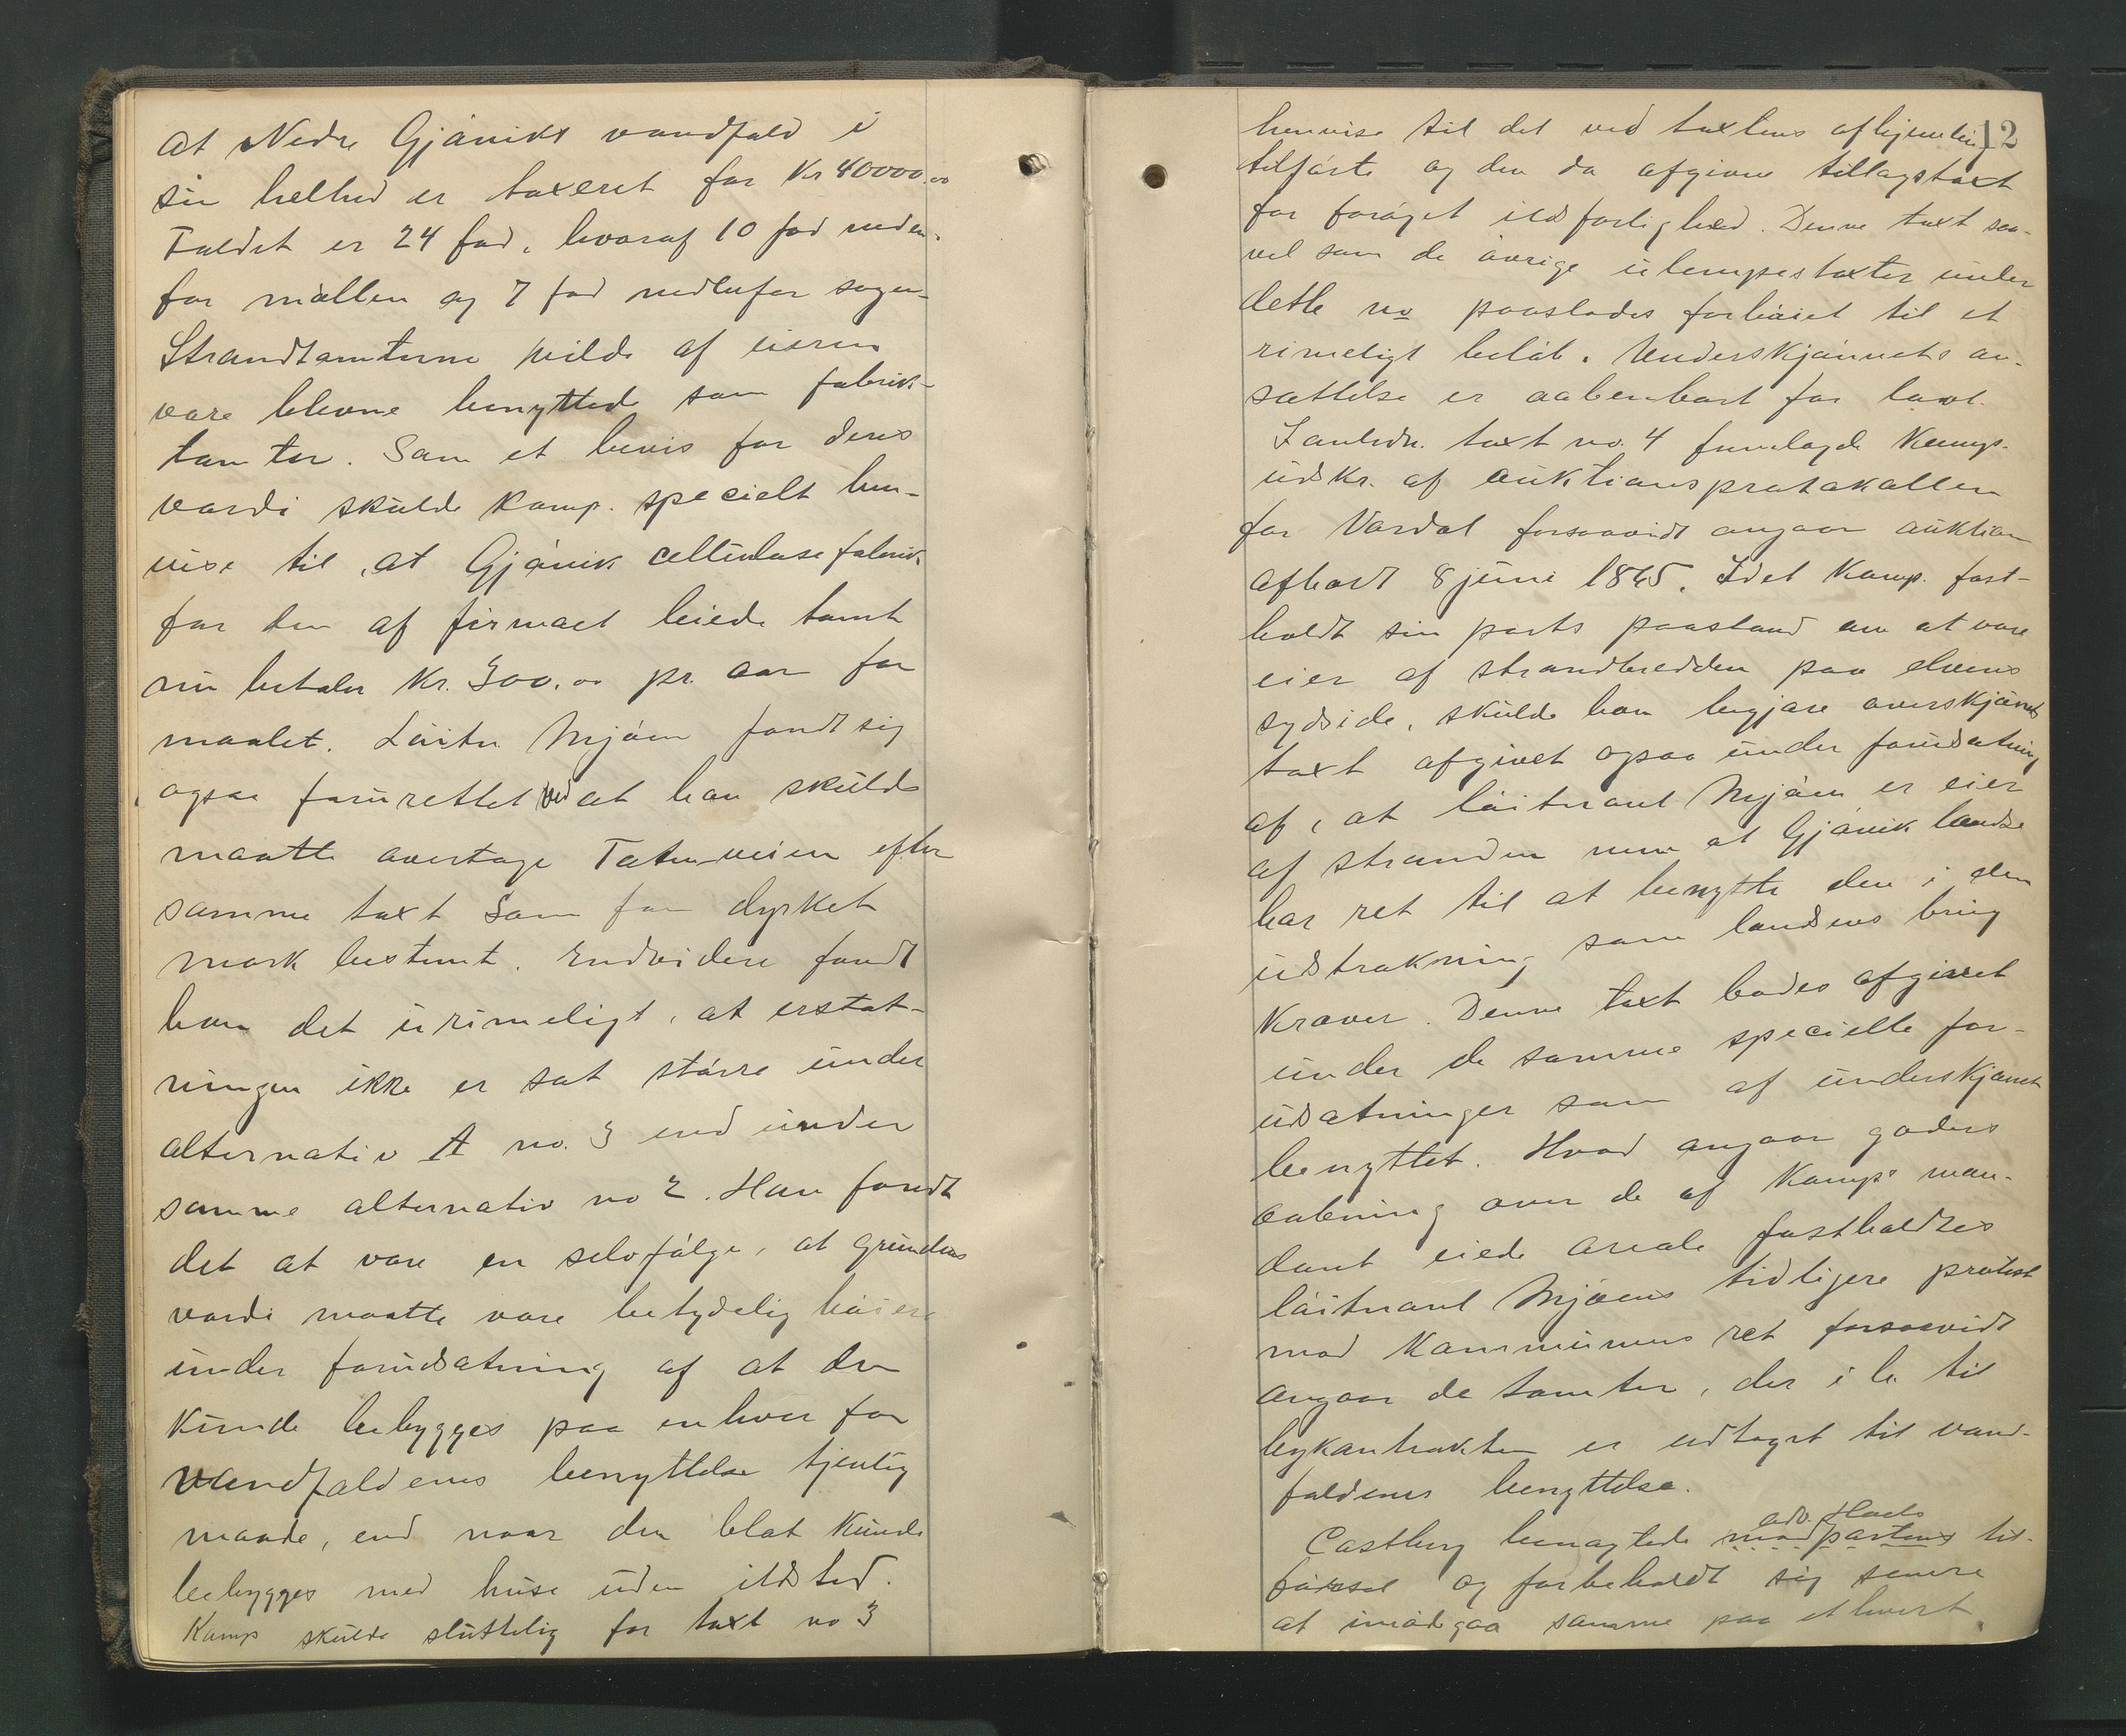 at Nedre Gjøviks vandfald i
sin helhed er taxeret for Kr 40000.00
Faldet er 24 fod, hvoraf 10 fod neden-
for møllen og 7 fod nedenfor sagen.
Strandtomterne vilde af eieren
være blevne benyttede som fabrik-
tomter. Som et bevis for deres
værdi skulde komp. specielt hen-
vise til, at Gjøvik cellulosefabrik
for den af firmaet leiede tomt
nu betaler Kr. 300.00 pr. aar for
maalet. Løitn Mjøen fandt sig
ogsaa forurettet ved at han skulde
maatte overtage Totenveien efter
samme taxt som for dyrket
mark bestemt. Endvidere fandt
han det urimeligt, at erstat-
ningen ikke er sat større under
alternativ A no. 3 end under
samme alternativ no 2. Han fandt
det at være en selvfølge, at grundens
værdi maatte være betydelig høiere
under forudsætning af at den
kunde bebygges paa enhver for
vandfaldenes benyttelse tjenlig
maade, end naar den blot kunde
bebygges med huse uden ildsted.
Komp skulde sluttelig for taxt no 3
12
henvise til det ved taxtens afhjemling
tilførte og den da afgivne tillægstaxt
for forøget ildsfarlighed. Denne taxt saa-
vel som de øvrige ulempestaxter under
dette no paastodes forhøiet til et
rimeligt beløb. Underskjønnets an-
sættelse er aabenbart for lavt.
I anledn. taxt no. 4 fremlagde Komp.
udskr. af auktionsprotokollen
for Vardal forsaavidt angaar auktion
afholdt 8 juni 1865. Idet Komp. fast-
holdt sin parts paastand om at være
eier af strandbredden paa elvens
sydside, skulde han begjære overskjønnets
taxt afgivet ogsaa under forudsætning
af, at løitnant Mjøen er eier
af stranden men at Gjøvik landse
har ret til at benytte den i den
udstrækning som landsens brug
kræver. Denne taxt bades afgivet
under de samme specielle for-
udsætninger som af underskjønnet
benyttet. Hvad angaar gaders
aabning over de af Komps man-
dant eiede areale fastholdtes
løitnant Mjøens tidligere protest
mod Kommunens ret forsaavidt
angaar de tomter, der i h. til
bykontrakten er udtaget til vand-
faldenes benyttelse.
adv. Hoels
Castberg benægtede modpartens til-
førsel og forbeholdt sig senere
at imødegaa samme paa ethvert